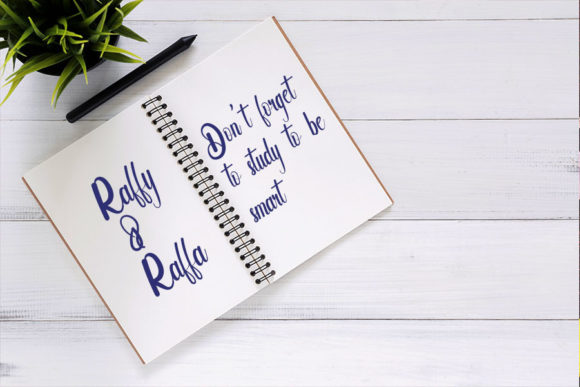 Raffy
&
Raffa
Don't forget
to study to be
smart